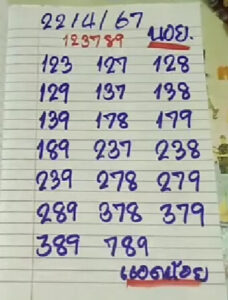 22/4/67
123789 นอย.
123 127 128
129 137 138
139 178 179
189 237 238
239 278 279
289 378 379
389 789
แอดน้อย